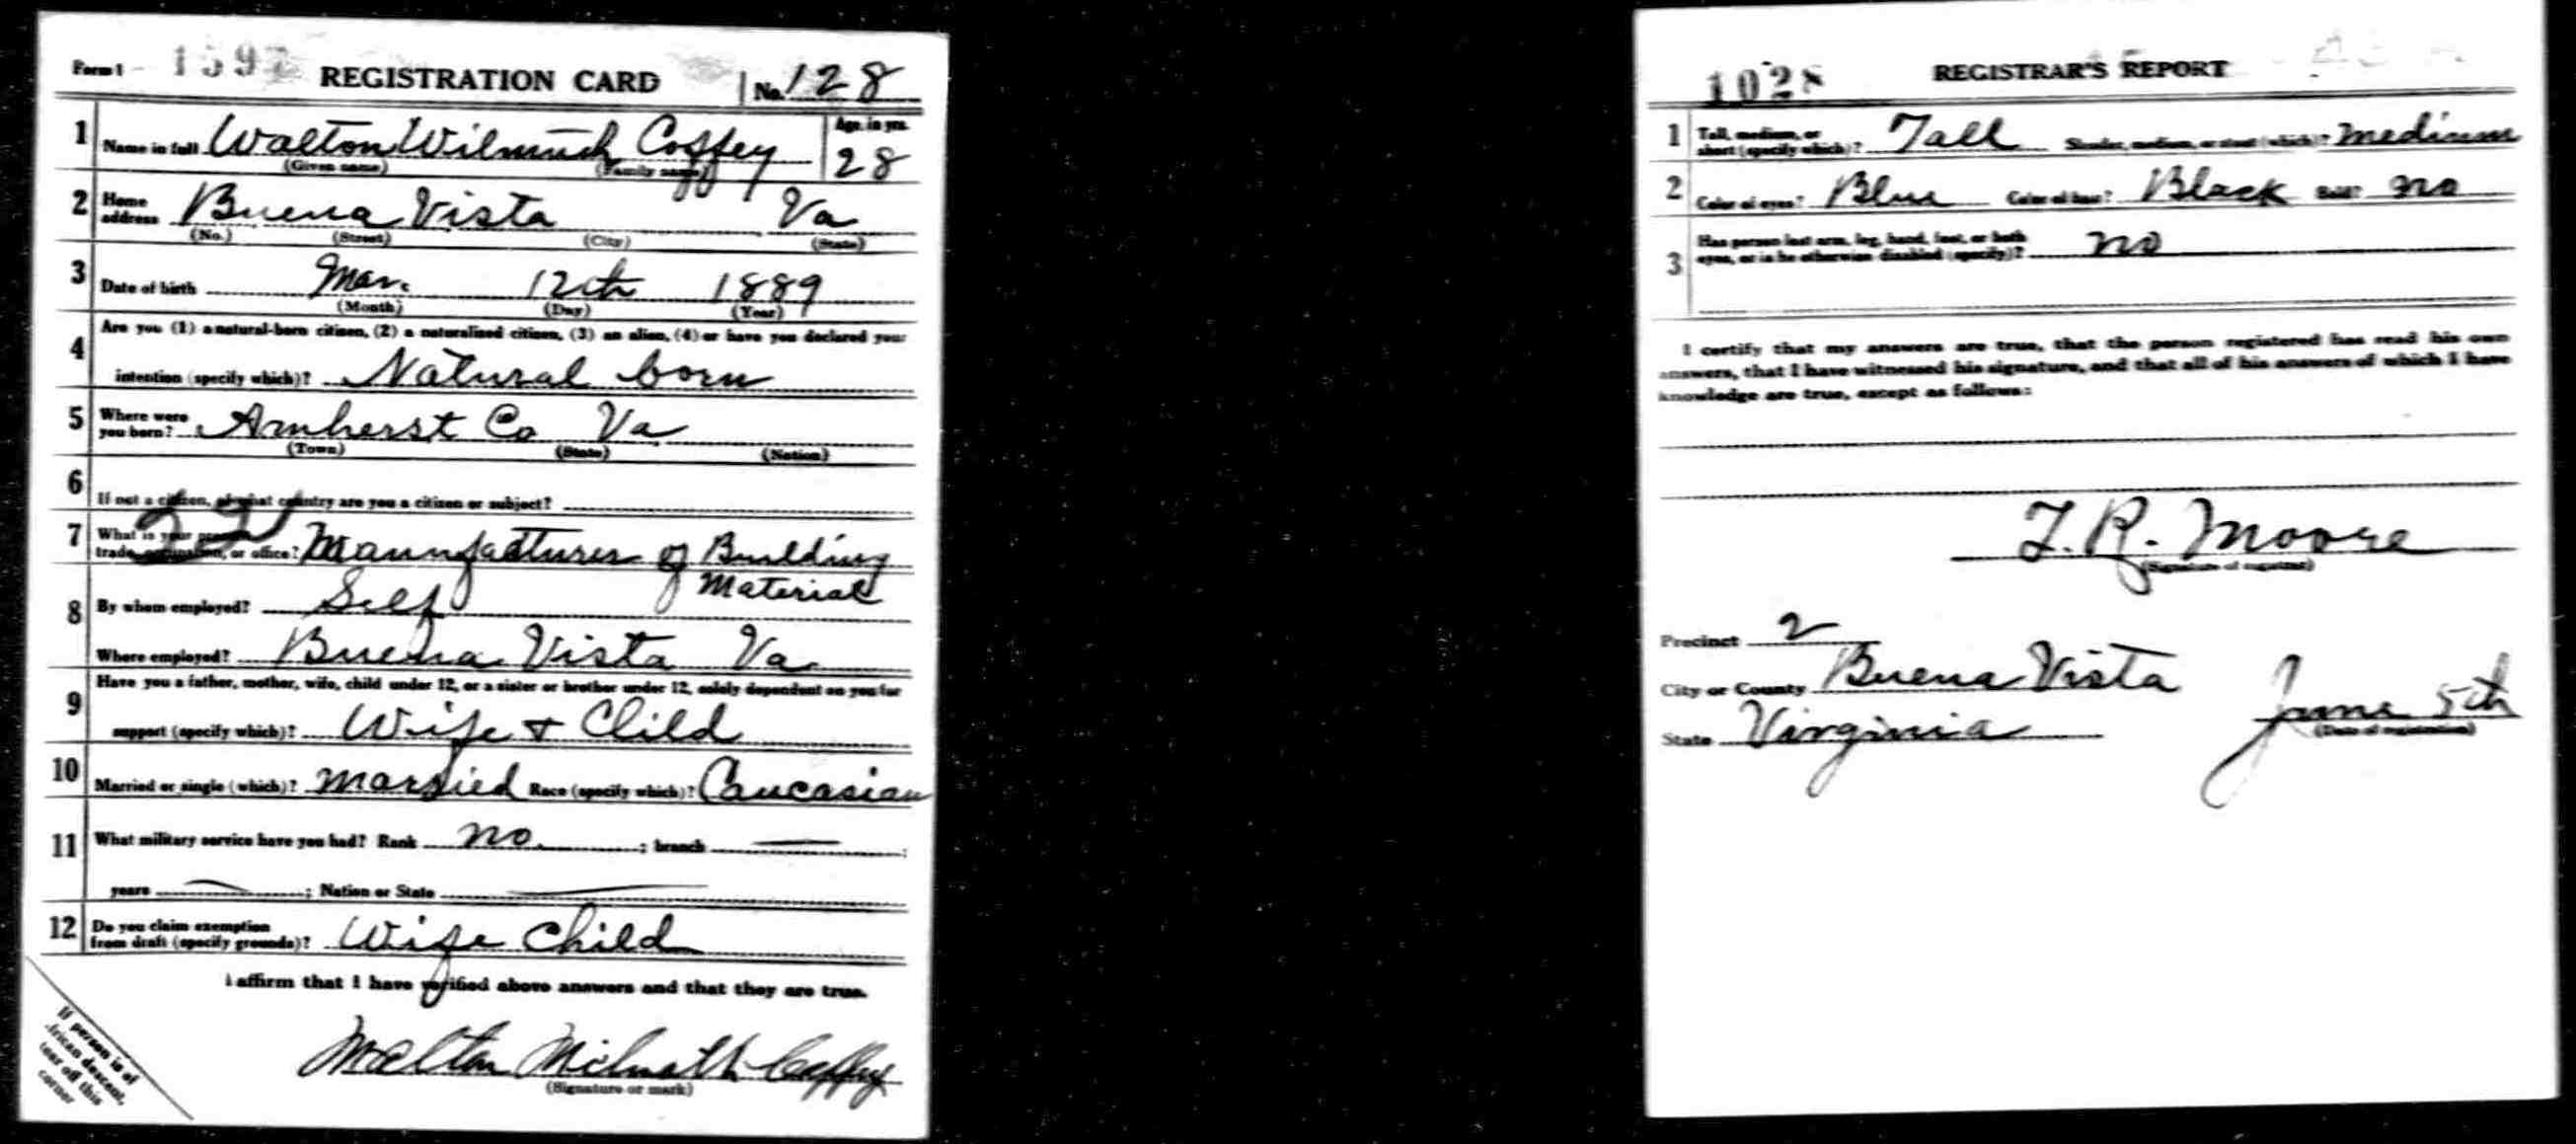 Form 1 1597 REGISTRATION CARD No. 128
1 Name in full Walton Wilmuth Coffey Age, in yrs. 28
(Given name) (Family name)
2 Home address Buena Vista Va
(No.) (Street) (City) (State)
3 Date of birth Mar. 12th 1889
(Month) (Day) (Year)
4 Are you (1) a natural-born citizen, (2) a naturalized citizen, (3) an alien, (4) or have you declared your
intention (specify which)? Natural born
5 Where were you born? Amherst Co Va
(Town) (State) (Nation)
6 If not a citizen, of what country are you a citizen or subject?
7 What is your present trade, occupation, or office? Manufacturer of Building
Material
8 By whom employed? Self
Where employed? Buena Vista Va
9 Have you a father, mother, wife, child under 12, or a sister or brother under 12, solely dependent on you for
support (specify which)? Wife + Child
10 Married or single (which)? Married Race (specify which)? Caucasian
11 What military service have you had? Rank no ; branch
years ; Nation or State
12 Do you claim exemption from draft (specify grounds)? Wife Child
I affirm that I have verified above answers and that they are true.
Walton Wilmuth Coffey
(Signature or mark)
If person is of
African descent,
tear off this
corner
1028 REGISTRAR'S REPORT
1 Tall, medium, or short (specify which)? Tall Slender, medium, or stout (which)? Medium
2 Color of eyes? Blue Color of hair? Black Bald? no
3 Has person lost arm, leg, hand, foot, or both
eyes, or is he otherwise disabled (specify)? no
I certify that my answers are true, that the person registered has read his own
answers, that I have witnessed his signature, and that all of his answers of which I have
knowledge are true, except as follows:
T. R. Moore
(Signature of registrar)
Precinct 2
City or County Buena Vista
State Virginia June 5th
(Date of registration)